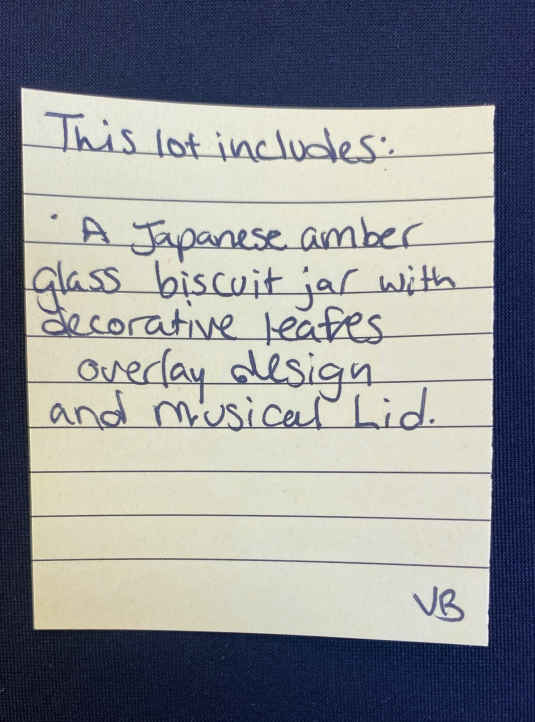 This lot includes:
· A Japanese amber
glass biscuit jar with
decorative leafes
overlay design
and musical Lid.
VB